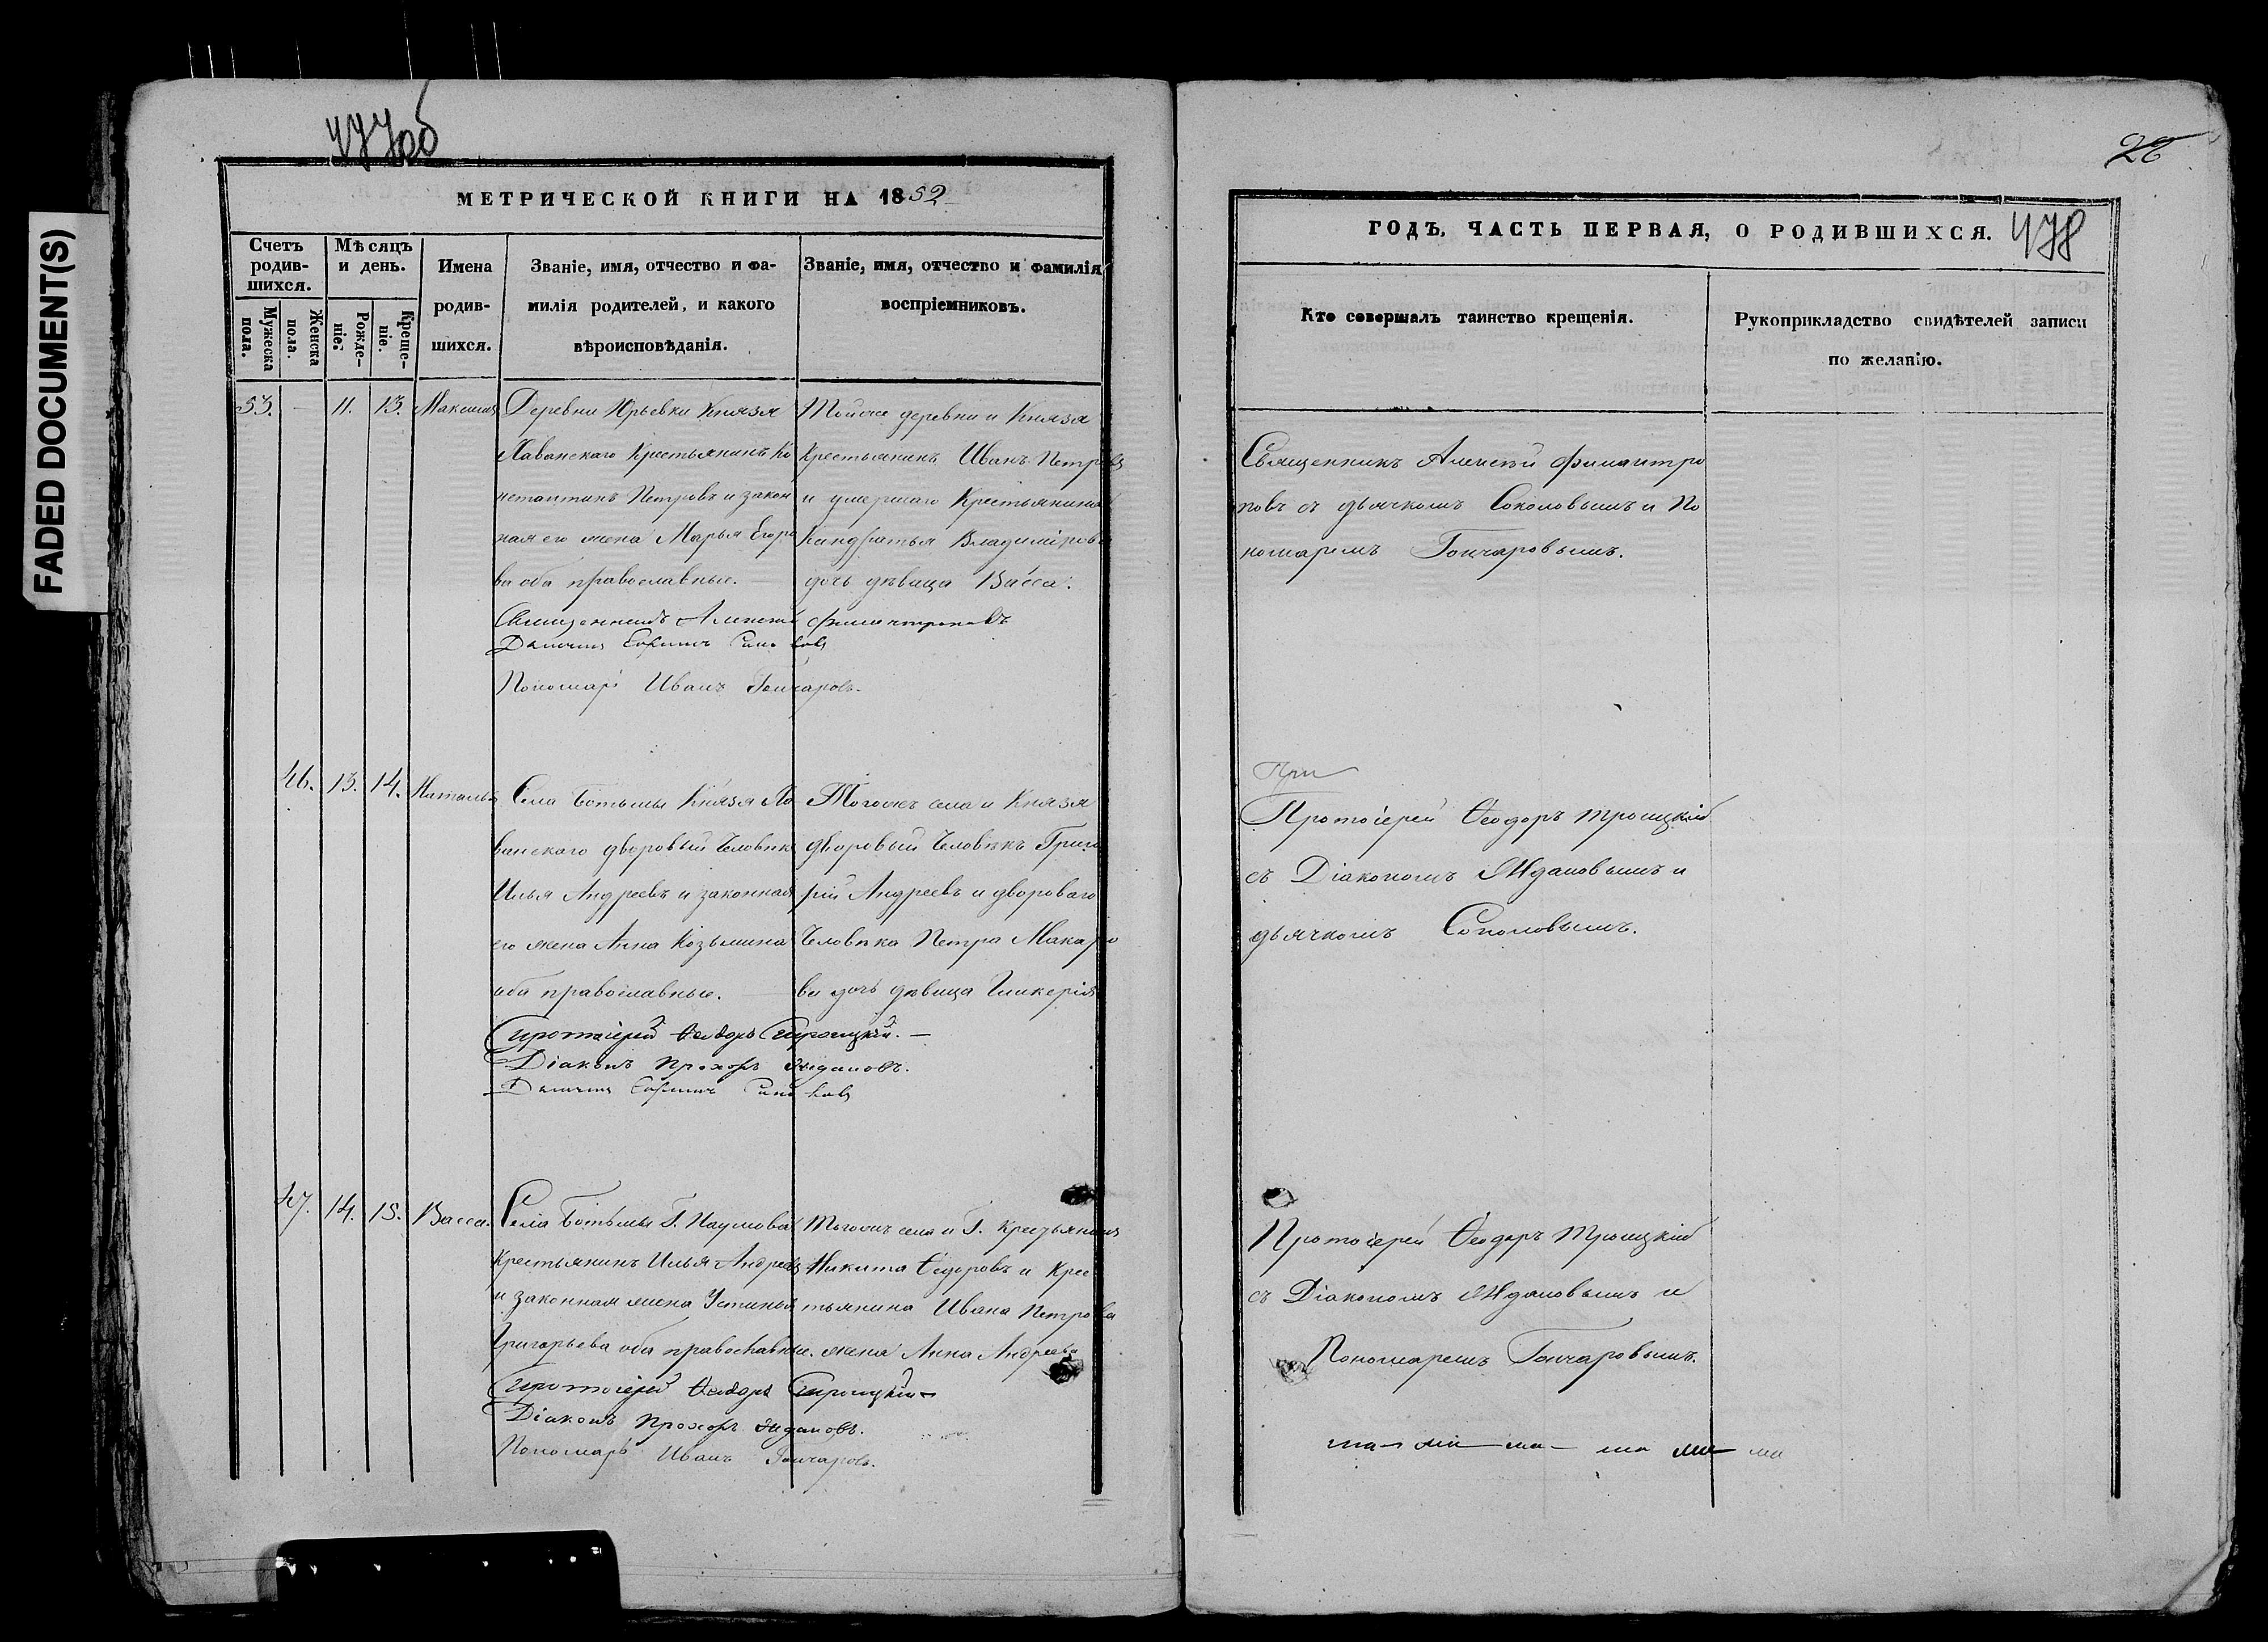 FADED DOCUMENT(S)
477об
МЕТРИЧЕСКОЙ КНИГИ НА 1852
Счетъ родив-шихся.
Мужеска пола.
Женска пола.
Мѣсяцъ и день.
Рожде-ніе.
Креще-ніе.
Имена родив-шихся.
Званіе, имя, отчество и фа-милія родителей, и какого вѣроисповѣданія.
Званіе, имя, отчество и фамилія воспріемниковъ.
53. — 11. 13. Максимъ
Деревни Юрьевки Князя
Лаванскаго Крестьянинъ Ко
нстантинъ Петровъ и закон
ная его жена Марья Егоро
ва оба православные.
Тойже деревни и Князя
Крестьянинъ Иванъ Петровъ
и умершаго Крестьянина
Кандратья Владимірова
дочь дѣвица Васса.
Священникъ Алексѣй Филантроповъ
Дьячекъ Соколовъ
Пономарь Иванъ Гончаровъ.
46. 13. 14. Наталья
Села Ботьмы Князя Ло
ванскаго дворовый Человѣкъ
Илья Андреевъ и законная
его жена Анна Козьмина
оба православные.
Тогожъ села и Князя
дворовый Человѣкъ Григо
рій Андреевъ и двороваго
Человѣка Петра Макаро
ва дочь дѣвица Гликерія
Протоіерей Ѳеодоръ Троицкій. —
Діаконъ Прохоръ Ждановъ.
Дьячекъ Соколовъ
47. 14. 15. Васса.
Села Ботьмы Г. Наумова
Крестьянинъ Илья Андреевъ
и законная жена Устинья
Григорьева оба православные.
Тогожъ села и Г. Крестьянинъ
Никита Ѳедоровъ и Крес
тьянина Ивана Петрова
жена Анна Андреева
Протоіерей Ѳеодоръ Троицкій
Діаконъ Прохоръ Ждановъ.
Пономарь Иванъ Гончаровъ.
26
ГОДЪ, ЧАСТЬ ПЕРВАЯ, О РОДИВШИХСЯ.
478
Кто совершалъ таинство крещенія.
Рукоприкладство свидѣтелей записи по желанію.
Священникъ Алексѣй Филантро
повъ съ дьячкомъ Соколовымъ и По
номаремъ Гончаровымъ.
При
Протоіерей Ѳеодоръ Троицкій
съ Діакономъ Ждановымъ и
дьячкомъ Соколовымъ.
Протоіерей Ѳеодоръ Троицкій
съ Діакономъ Ждановымъ и
Пономаремъ Гончаровымъ.